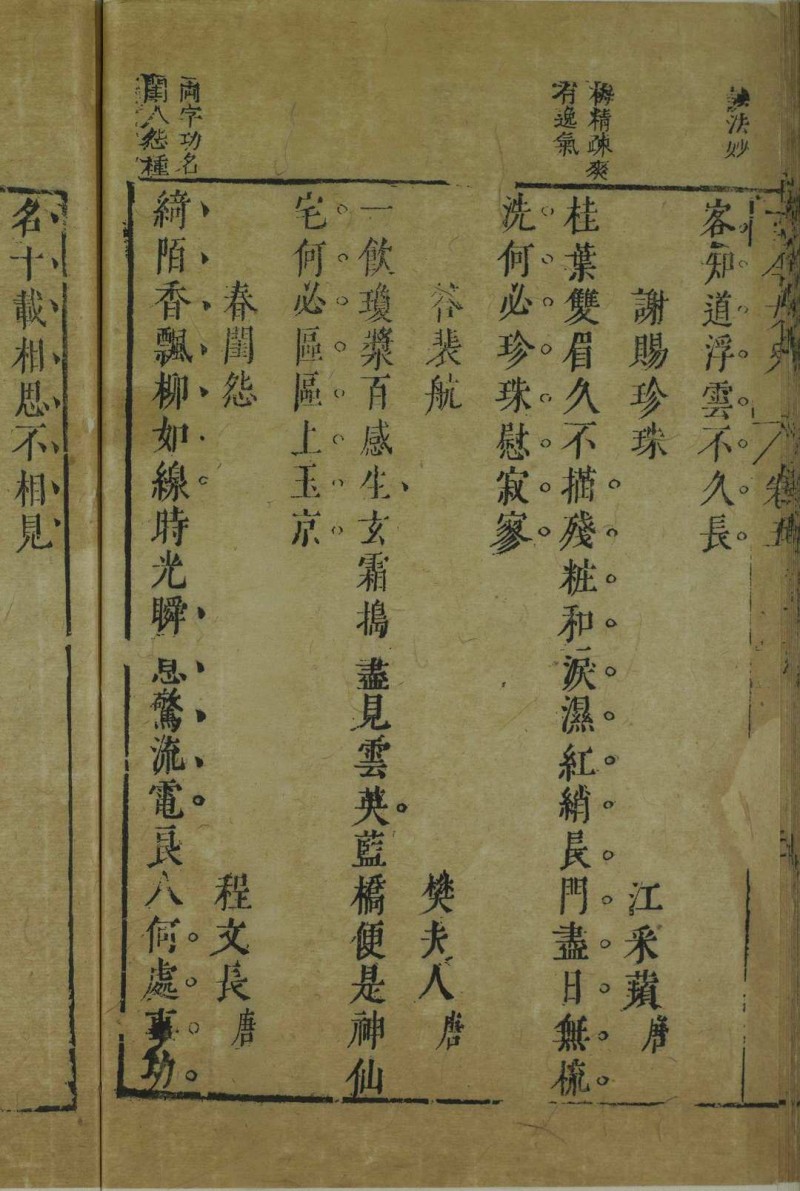 法妙
客知道浮雲不久長
梅精疎爽
有逸氣
謝賜珍珠
江采蘋唐
桂葉雙眉久不描殘粧和淚濕紅綃長門盡日無梳
洗何必珍珠慰寂寥
答裴航
樊夫人唐
一飲瓊漿百感生玄霜搗盡見雲英藍橋便是神仙
宅何必區區上玉京
兩字功名
閨人怨種
春閨怨
程文長唐
綺陌香飄柳如線時光瞬息驚流電良人何處事功
名十載相思不相見